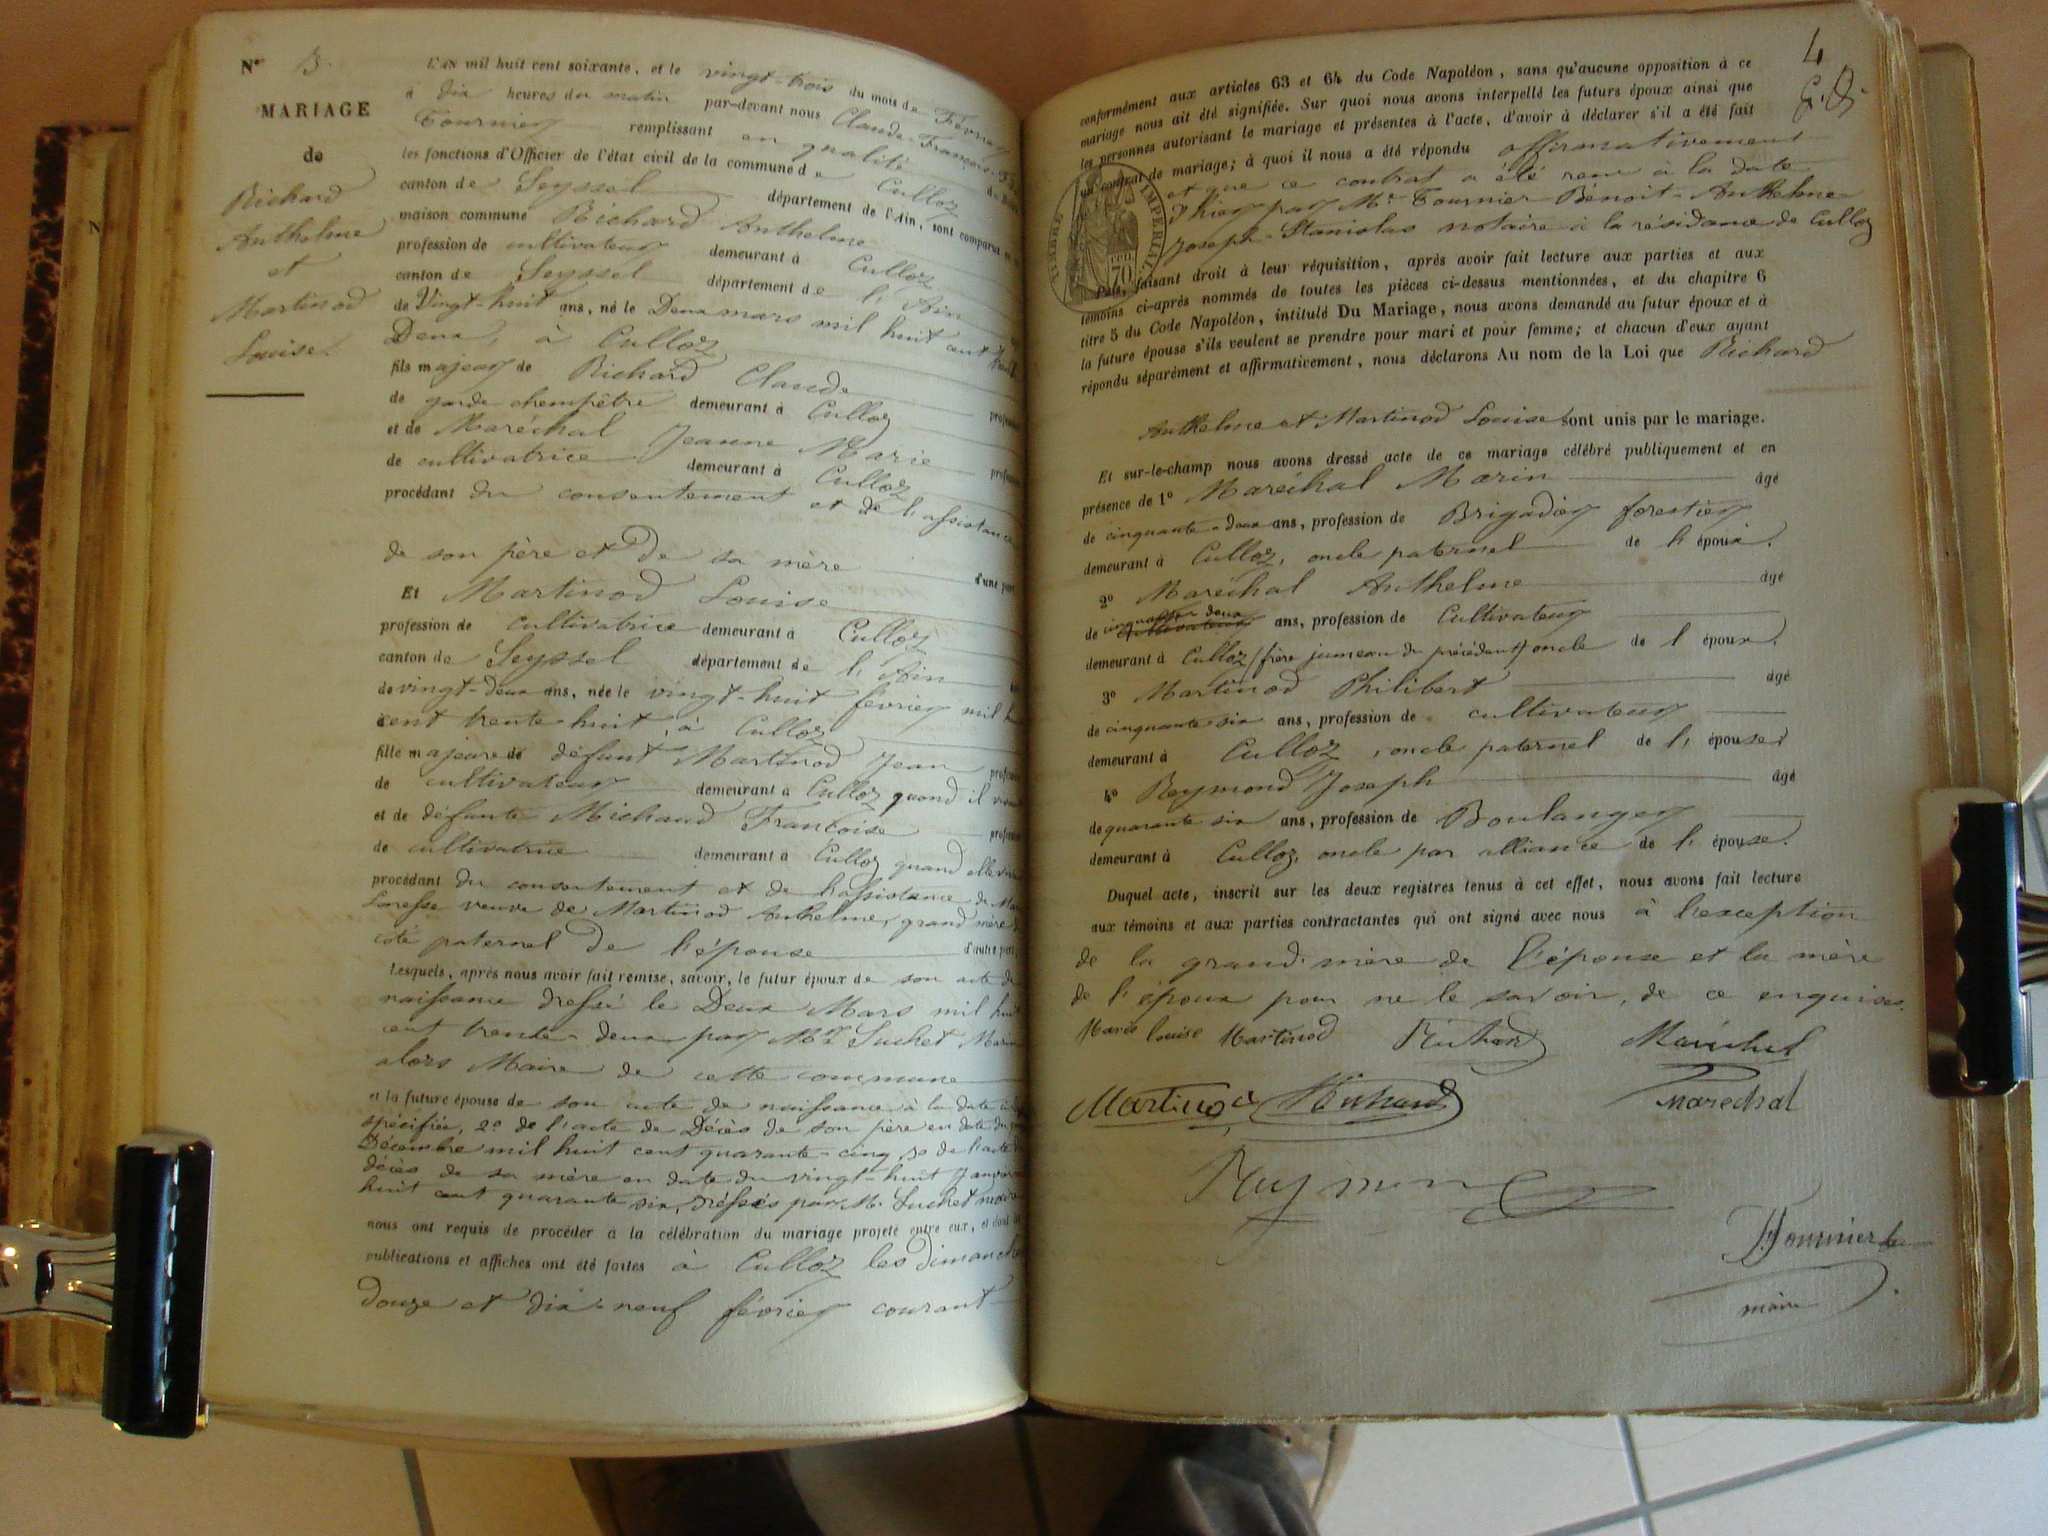 N° 3.
MARIAGE
de
Richard
Anthelme
et
Martinod
Louise.
L'AN mil huit cent soixante, et le vingt-trois du mois de Février
à dix heures du matin par-devant nous Claude-François
Fournier remplissant en qualité de
les fonctions d'Officier de l'état civil de la commune de Culloz
canton de Seyssel département de l'Ain, sont comparus
maison commune Richard Anthelme
profession de cultivateur demeurant à Culloz
canton de Seyssel département de l'Ain
de Vingt-huit ans, né le Deux mars mil huit cent trente
Deux, à Culloz
fils majeur de Richard Claude
de garde champêtre demeurant à Culloz
et de Maréchal Jeanne Marie
de cultivatrice demeurant à Culloz
procédant du consentement et de l'assistance
de son père et de sa mère d'une part
Et Martinod Louise
profession de cultivatrice demeurant à Culloz
canton de Seyssel département de l'Ain
de vingt-deux ans, née le vingt-huit février mil
cent trente-huit, à Culloz
fille majeure de défunt Martinod Jean
de cultivateur demeurant à Culloz quand il
et de défunte Michaud Françoise
de cultivatrice demeurant à Culloz quand elle
procédant du consentement et de l'assistance de
veuve de Martinod Anthelme, grand mère
côté paternel de l'épouse d'autre part,
Lesquels, après nous avoir fait remise, savoir, le futur époux de son acte de
naissance dressé le Deux Mars mil huit
cent trente-deux par Mr Suchet
alors Maire de cette commune
et la future épouse de son acte de naissance à la date
spécifiée, 2° de l'acte de Décès de son père en date du
Décembre mil huit cent quarante-cinq, 3° de l'acte
décès de sa mère en date du vingt-huit Janvier
huit cent quarante six, dressés par Mr Suchet
nous ont requis de procéder à la célébration du mariage projeté entre eux, et dont les
publications et affiches ont été faites à Culloz les dimanches
douze et dix-neuf février courant
4
conformément aux articles 63 et 64 du Code Napoléon, sans qu'aucune opposition à ce
mariage nous ait été signifiée. Sur quoi nous avons interpellé les futurs époux ainsi que
les personnes autorisant le mariage et présentes à l'acte, d'avoir à déclarer s'il a été fait
un contrat de mariage; à quoi il nous a été répondu affirmativement
et que ce contrat a été reçu à la date
d'hier par Me Fournier Benoit-Anthelme
Joseph-Stanislas notaire à la résidance de Culloz
TIMBRE IMPERIAL
70
Puis, faisant droit à leur réquisition, après avoir fait lecture aux parties et aux
témoins ci-après nommés de toutes les pièces ci-dessus mentionnées, et du chapitre 6
titre 5 du Code Napoléon, intitulé Du Mariage, nous avons demandé au futur époux et à
la future épouse s'ils veulent se prendre pour mari et pour femme; et chacun d'eux ayant
répondu séparément et affirmativement, nous déclarons Au nom de la Loi que Richard
Anthelme et Martinod Louise sont unis par le mariage.
Et sur-le-champ nous avons dressé acte de ce mariage célébré publiquement et en
présence de 1° Maréchal Marin âgé
de cinquante-deux ans, profession de Brigadier forestier
demeurant à Culloz, oncle paternel de l'époux.
2° Maréchal Anthelme âgé
de cinquante deux ans, profession de Cultivateur
demeurant à Culloz (frère jumeau du précédent) oncle de l'époux.
3° Martinod Philibert âgé
de cinquante-six ans, profession de cultivateur
demeurant à Culloz, oncle paternel de l'épouse.
4° Reymond Joseph âgé
de quarante six ans, profession de Boulanger
demeurant à Culloz, oncle par alliance de l'épouse.
Duquel acte, inscrit sur les deux registres tenus à cet effet, nous avons fait lecture
aux témoins et aux parties contractantes qui ont signé avec nous à l'exception
de la grand'mère de l'épouse et la mère
de l'époux pour ne le savoir, de ce enquises.
Marie louise Martinod Richard Maréchal
Martinod Richard Marechal
Raymond
Fournier
maire